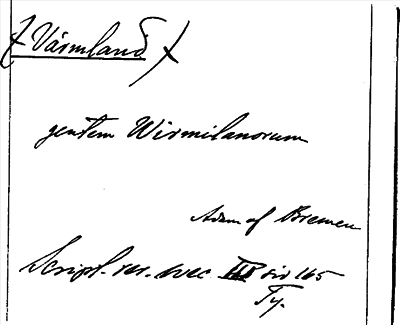 Värmland
gentem Wirmilanorum
Adam af Bremen
Script. rer. svec. III sid 165
Ty.